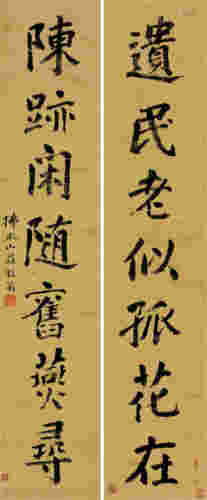 遺民老似孤花在
陳跡閑随舊燕尋